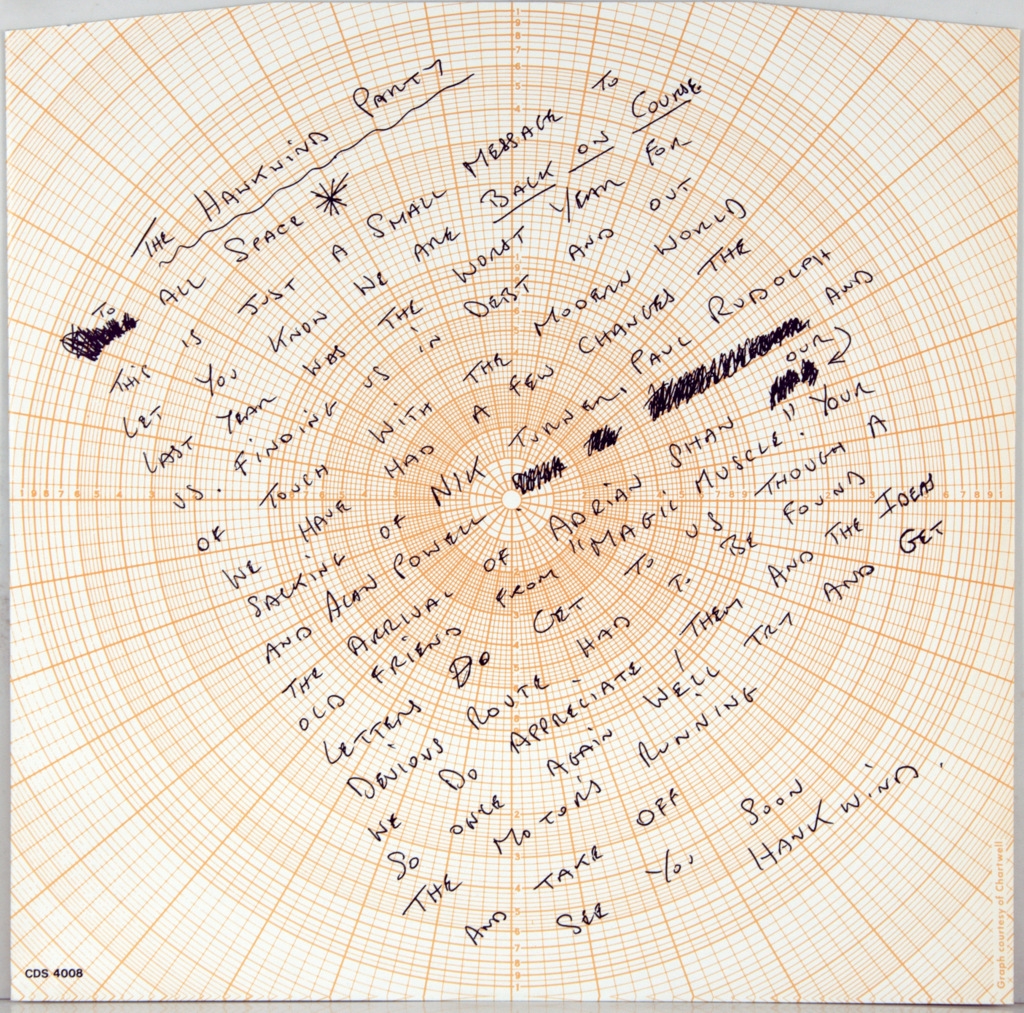 THE HAWKWIND PARTY
TO ALL SPACE
THIS IS JUST A SMALL MESSAGE TO
LET YOU KNOW WE ARE BACK ON COURSE
LAST YEAR WAS THE WORST YEAR FOR
US. FINDING US IN DEBT AND OUT
OF TOUCH WITH THE MODERN WORLD
WE HAVE HAD A FEW CHANGES THE
SACKING OF NIK TURNER, PAUL RUDOLPH
AND ALAN POWELL. AND
THE ARRIVAL OF ADRIAN SHAN OUR
OLD FRIEND FROM "MAGIC MUSCLE". YOUR
LETTERS DO GET TO US THOUGH A
DEVIOUS ROUTE HAD TO BE FOUND
WE DO APPRECIATE THEM AND THE IDEAS
SO ONCE AGAIN WE'LL TRY AND GET
THE MOTORS RUNNING
AND TAKE OFF
SEE YOU SOON
HAWKWIND.
CDS 4008
Graph courtesy of Chartwell